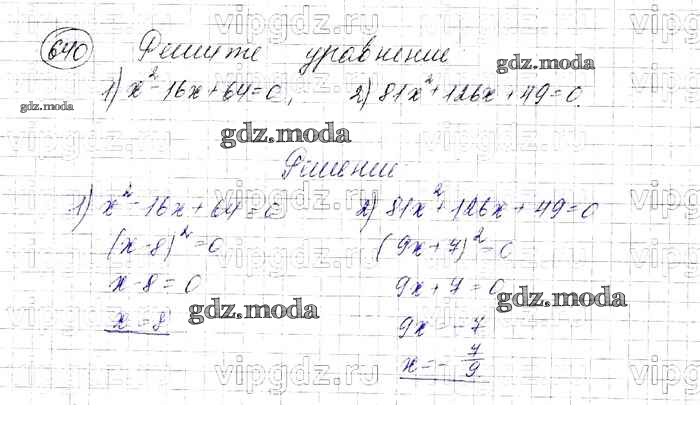 640 Решите уравнение
1) x² - 16x + 64 = 0, 2) 81x² + 126x + 49 = 0.
Решение
1) x² - 16x + 64 = 0
(x - 8)² = 0
x - 8 = 0
x = 8
2) 81x² + 126x + 49 = 0
(9x + 7)² = 0
9x + 7 = 0
9x = -7
x = - 7/9
gdz.moda
gdz.moda
gdz.moda
gdz.moda
gdz.moda
vipgdz.ru